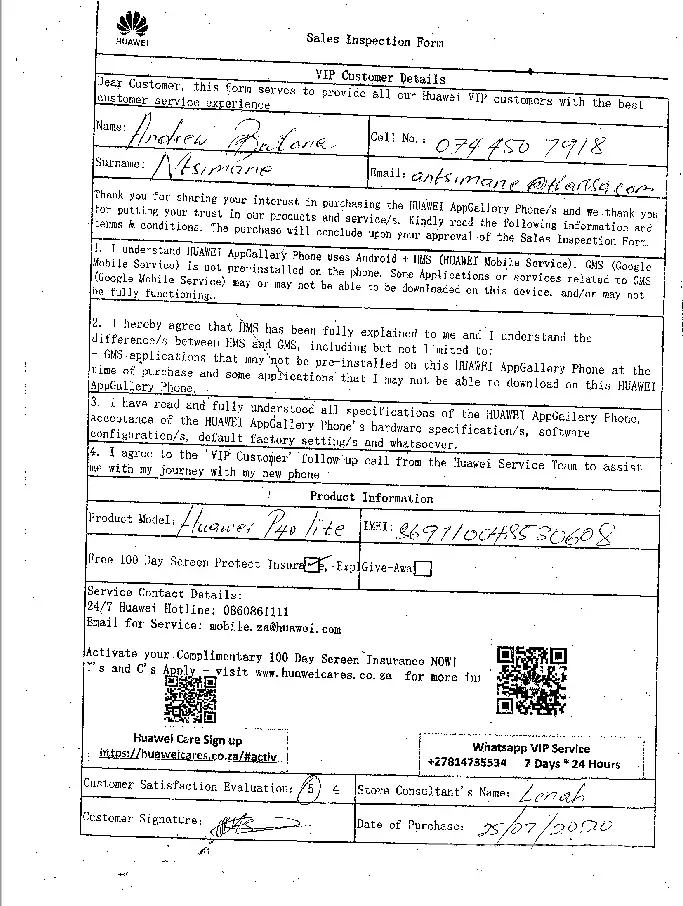 HUAWEI
Sales Inspection Form
VIP Customer Details
Dear Customer, this form serves to provide all our Huawei VIP customers with the best
customer service experience
Name: Andrew
Cell No.: 074 450 7918
Surname: Ntsimane
Email: antsimane@
Thank you for sharing your interest in purchasing the HUAWEI AppGallery Phone/s and we thank you
for putting your trust in our products and service/s. Kindly read the following information and
terms & conditions. The purchase will conclude upon your approval of the Sales Inspection Form
1. I understand HUAWEI AppGallery Phone uses Android + HMS (HUAWEI Mobile Service). GMS (Google
Mobile Service) is not pre-installed on the phone. Some Applications or services related to GMS
(Google Mobile Service) may or may not be able to be downloaded on this device, and/or may not
be fully functioning.
2. I hereby agree that HMS has been fully explained to me and I understand the
difference/s between HMS and GMS, including but not limited to:
- GMS applications that may not be pre-installed on this HUAWEI AppGallery Phone at the
time of purchase and some applications that I may not be able to download on this HUAWEI
AppGallery Phone.
3. I have read and fully understood all specifications of the HUAWEI AppGallery Phone,
acceptance of the HUAWEI AppGallery Phone's hardware specification/s, software
configuration/s, default factory setting/s and whatsoever.
4. I agree to the 'VIP Customer' follow-up call from the Huawei Service Team to assist
me with my journey with my new phone
Product Information
Product Model: Huawei P40 lite
IMEI: 869710048530608
Free 100 Day Screen Protect Insura Exp Give-Awa
Service Contact Details:
24/7 Huawei Hotline: 0860861111
Email for Service: mobile.za@huawei.com
Activate your Complimentary 100 Day Screen Insurance NOW!
T's and C's Apply - visit www.huaweicares.co.za for more in
Huawei Care Sign up
https://huaweicares.co.za/#activ
Whatsapp VIP Service
+27814735534 7 Days * 24 Hours
Customer Satisfaction Evaluation: 5 4
Store Consultant's Name: Lenah
Customer Signature:
Date of Purchase: 25/07/2020